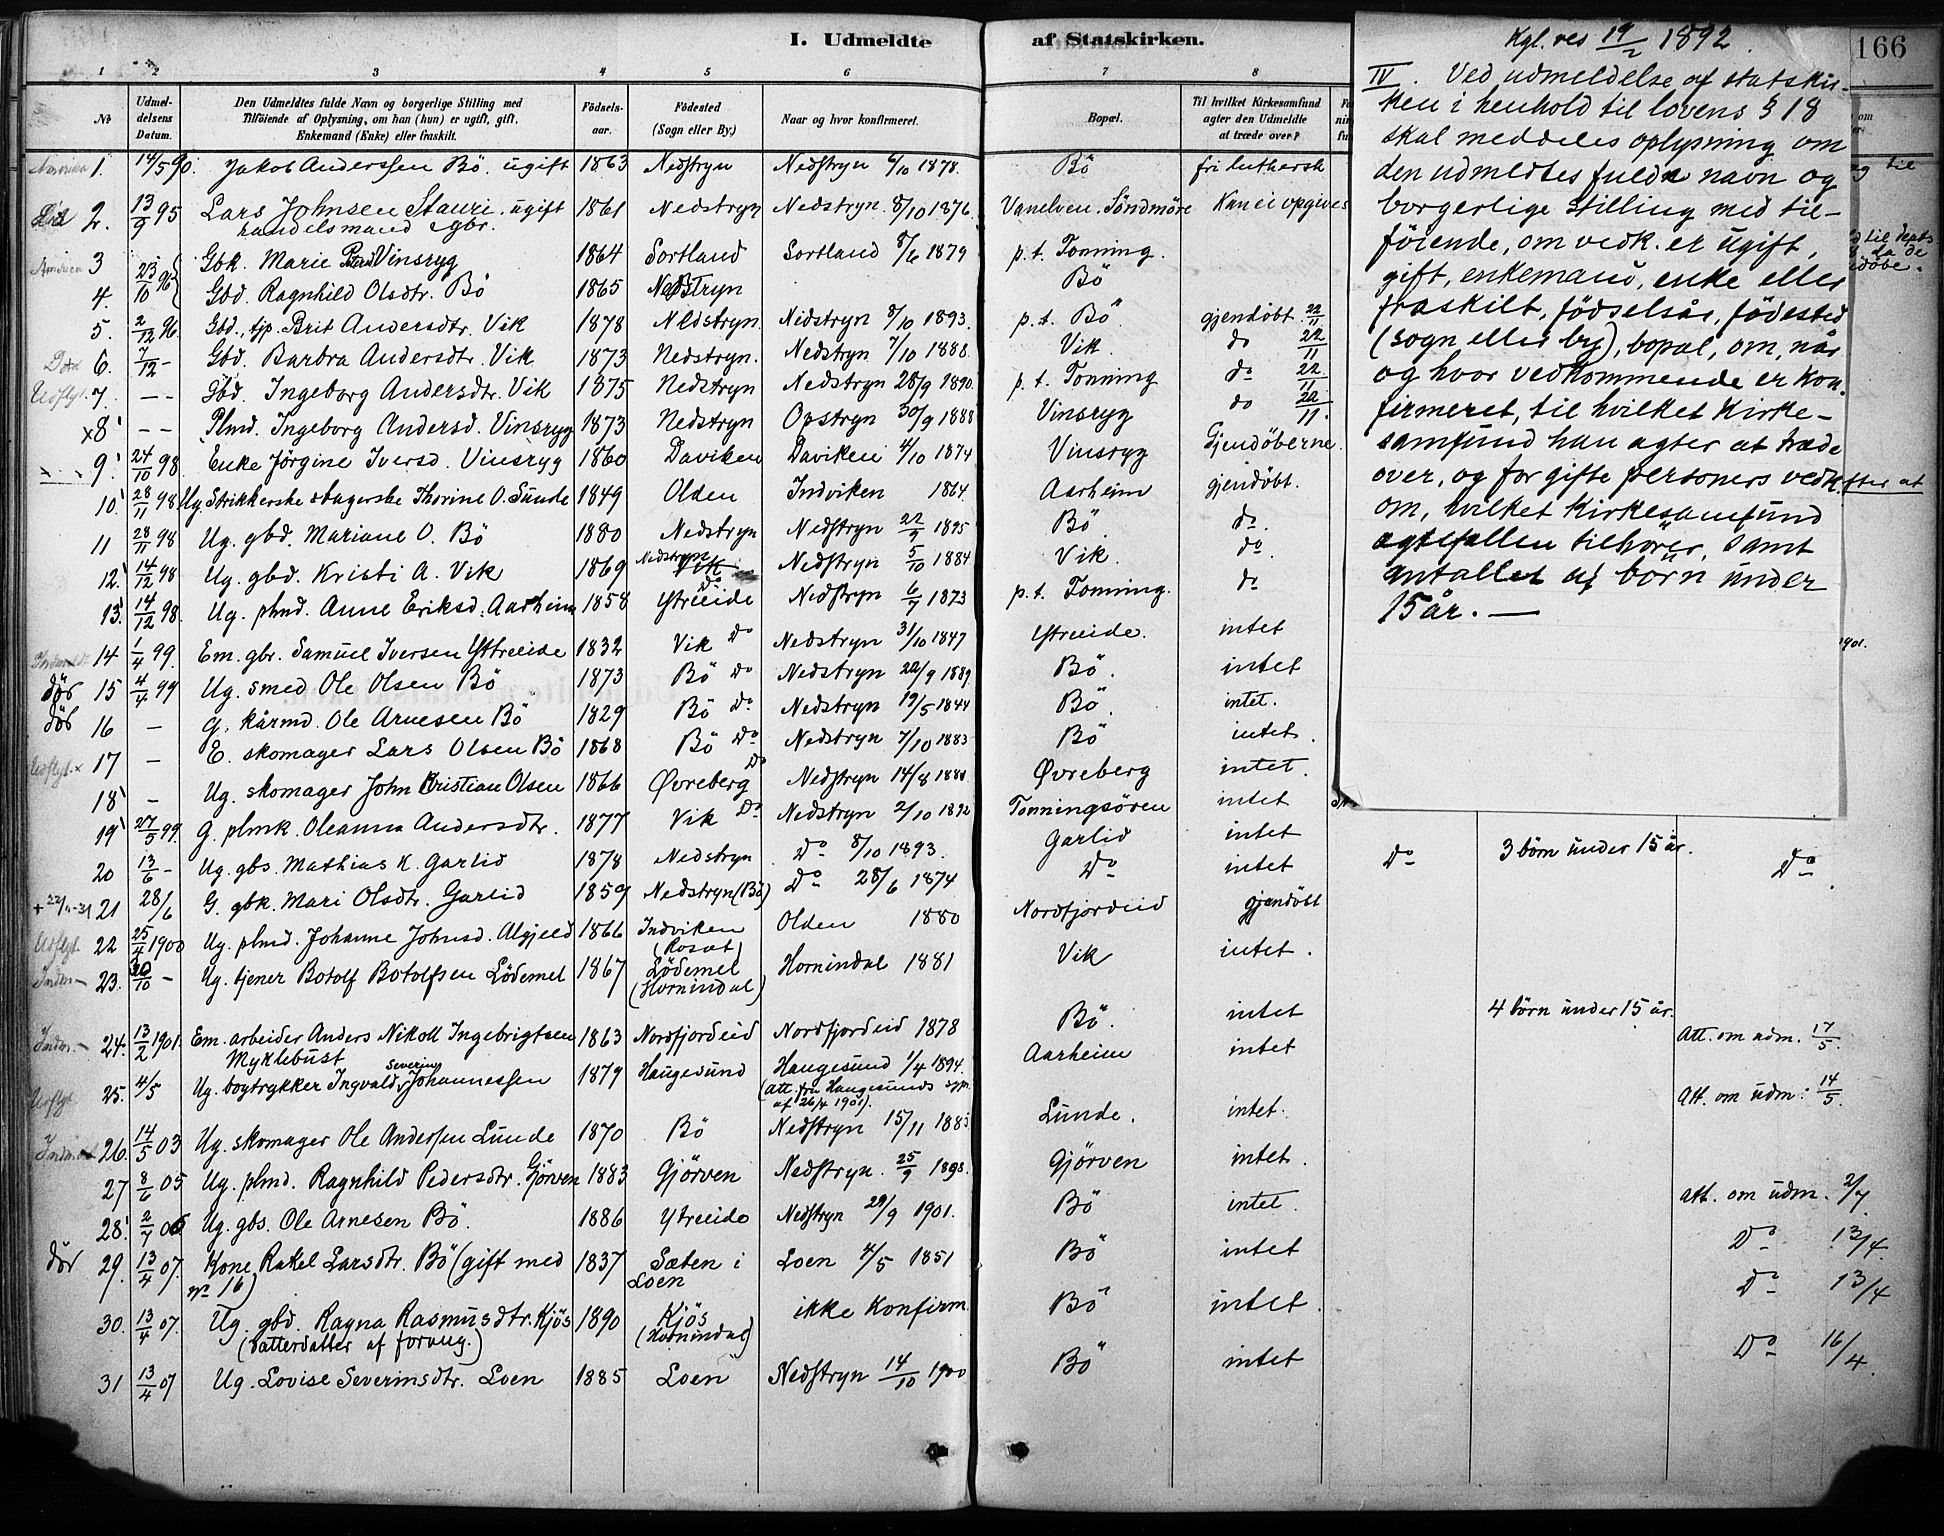 I. Udmeldte af Statskirken.
166
1 2 3 4 5 6 7 8
No
Udmel-
delsens
Datum.
Den Udmeldtes fulde Navn og borgerlige Stilling med
Tilföiende af Oplysning, om han (hun) er ugift, gift,
Enkemand (Enke) eller fraskilt.
Födsels-
aar.
Födested
(Sogn eller By.)
Naar og hvor konfirmeret.
Bopæl.
Til hvilket Kirkesamfund
agter den Udmeldte
at træde over?
1. 14/5 90. Jakob Anderssen Bö. ugift 1863 Nedstryn Nedstryn 6/10 1878. Bö fri luthersk
2. 13/9 95 Lars Johnsen Stauri. ugift 1861 Nedstryn Nedstryn 8/10 1876. Vanelven. Söndmöre Kan ei opgives
handelsmand gbr.
America 3 23/10 96 Gbk. Marie Vinsryg 1864 Sortland Sortland 8/6 1879 p. t. Tonning.
4. Gbd. Ragnhild Olsdtr. Bö 1865 Nedstryn Bö
5. 2/12 96. Gbd. tjp. Brit Andersdtr. Vik 1878 Nedstryn. Nedstryn 8/10 1893. p. t. Bö gjendöbt. 22/11
6. 7/12 - Gbd. Barbra Andersdtr. Vik 1873 Nedstryn. Nedstryn 7/10 1888 Vik. do 22/11
Udflyt. 7. - - Gbd. Ingeborg Andersdtr. Vik 1875 Nedstryn Nedstryn 28/9 1890. p. t. Tonning do 22/11
x8 - - Plmd. Ingeborg Andersd. Vinsryg 1873 Nedstryn Opstryn 30/9 1888 Vinsryg do 22/11.
9. 24/10 98. Enke Jörgine Iversd. Vinsryg 1860 Daviken Daviken 4/10 1874 Vinsryg Gjendöberne.
10. 28/11 98 Ug. Strikkerske & bagerske Thorine O. Sunde 1849 Olden Indviken 1864. Aarheim gjendöbt.
11 28/11 98 Ug. gbd. Mariane O. Bö 1880 Nedstryn Nedstryn 22/9 1895 Bö. do.
12. 14/12 98 Ug. gbd. Kristi A. Vik 1869 Nedstryn Vik Nedstryn 5/10 1884 Vik. do.
13. 14/12 98. Ug. plmd. Anne Eriksd. Aarheim 1858 Ytreeide do Nedstryn 6/7 1873 p. t. Tonning. do
14 1/4 99. Em. gbr. Samuel Iversen Ytreeide 1832 Vik Do Nedstryn 31/10 1847 Ytreeide. intet
döb 15 4/4 99 Ug. smed Ole Olsen Bö 1873 Bö Do Nedstryn 22/9 1889. Bö. intet
döb 16 - G. kårmd. Ole Arnesen Bö 1829 Bö Do Nedstryn 19/5 1844 Bö. intet.
Udflyt. x 17 - E. skomager Lars Olsen Bö 1868 Bö Do Nedstryn 7/10 1883 Bö intet.
18 - Ug. skomager John Kristian Olsen 1866 Øvreberg Do Nedstryn 14/8 1881 Øvreberg intet.
19 27/5 99. G. plmk. Oleanna Andersdtr. 1877 Vik Do Nedstryn 2/10 1892 Tonningsören intet
20 13/6 - Ug. gbs. Mathias K. Garlid 1878 Nedstryn Do 8/10 1893. Garlid intet
+ 22/11-31 21 28/6 G. gbk. Mari Olsdtr. Garlid 1859 Nedstryn (Bö) Do 28/6 1874 Do intet Do 3 börn under 15 år. Do.
Udflyt. 22 25/4 1900 Ug. plmd. Johanne Johnsd. Algjeld 1866 Indviken Olden 1880 Nordfjordeid gjendöbt
23. 30/10 - Ug. tjener Botolf Botolfsen Lödemel 1867 Lödemel Hornindal 1881 Vik intet.
(Hornindal)
24. 13/2 1901. Em. arbeider Anders Nikoll Ingebrigtsen 1863 Nordfjordeid Nordfjordeid 1878 Bö. intet 4 börn under 15 år.
Myklebust
Udflyt. 25. 4/5 Ug. bogtrykker Ingvald Severin Johannessen 1879 Haugesund Haugesund 1/4 1894. Aarheim intet Att. om udm. 17/5.
(att. fra Haugesunds
af 26/4 1901).
26. 14/5 03 Ug. skomager Ole Andersen Lunde 1870 Bö Nedstryn 15/11 1885 Lunde. intet. Att. om udm: 14/5.
27 8/6 05 Ug. plmd. Ragnhild Pedersdtr. Gjörven 1883 Gjörven Nedstryn. 25/9 1898. Gjörven intet.
28. 2/7 06 Ug. gbs. Ole Arnesen Bö. 1886 Ytreeide Nedstryn 29/9 1901. Bö intet. att. om udm. 2/7.
döv 29. 13/4 07. Kone Rakel Larsdtr. Bö (gift med 1837 Sæten i Loen 4/5 1851 Bö intet Do 13/4.
No 16) Loen
30. 13/4 07. Ug. gbd. Ragna Rasmusdtr. Kjös 1890 Kjös ikke Konfirm. Bö intet. Do 13/4
(Datterdatter af foreng.) (Hornindal)
31 13/4 07 Ug. Lovise Severinsdtr. Loen 1885 Loen Nedstryn 14/10 1900 Bö intet Do 16/4.
Kgl. res 19/2 1892.
IV. Ved udmeldelse af statskir-
ken i henhold til lovens § 18
skal meddeles oplysning om
den udmeldtes fulde navn og
borgerlige stilling med til-
föiende, om vedk. er ugift,
gift, enkemand, enke eller
fraskilt, födselsår, födested
(sogn eller by), bopæl, om, når
og hvor vedkommende er kon-
firmeret, til hvilket kirke-
samfund han agter at træde
over, og for gifte personers vedk.
om, hvilket kirkesamfund
ægtefællen tilhörer, samt
antallet af börn under
15 år. —
1901.